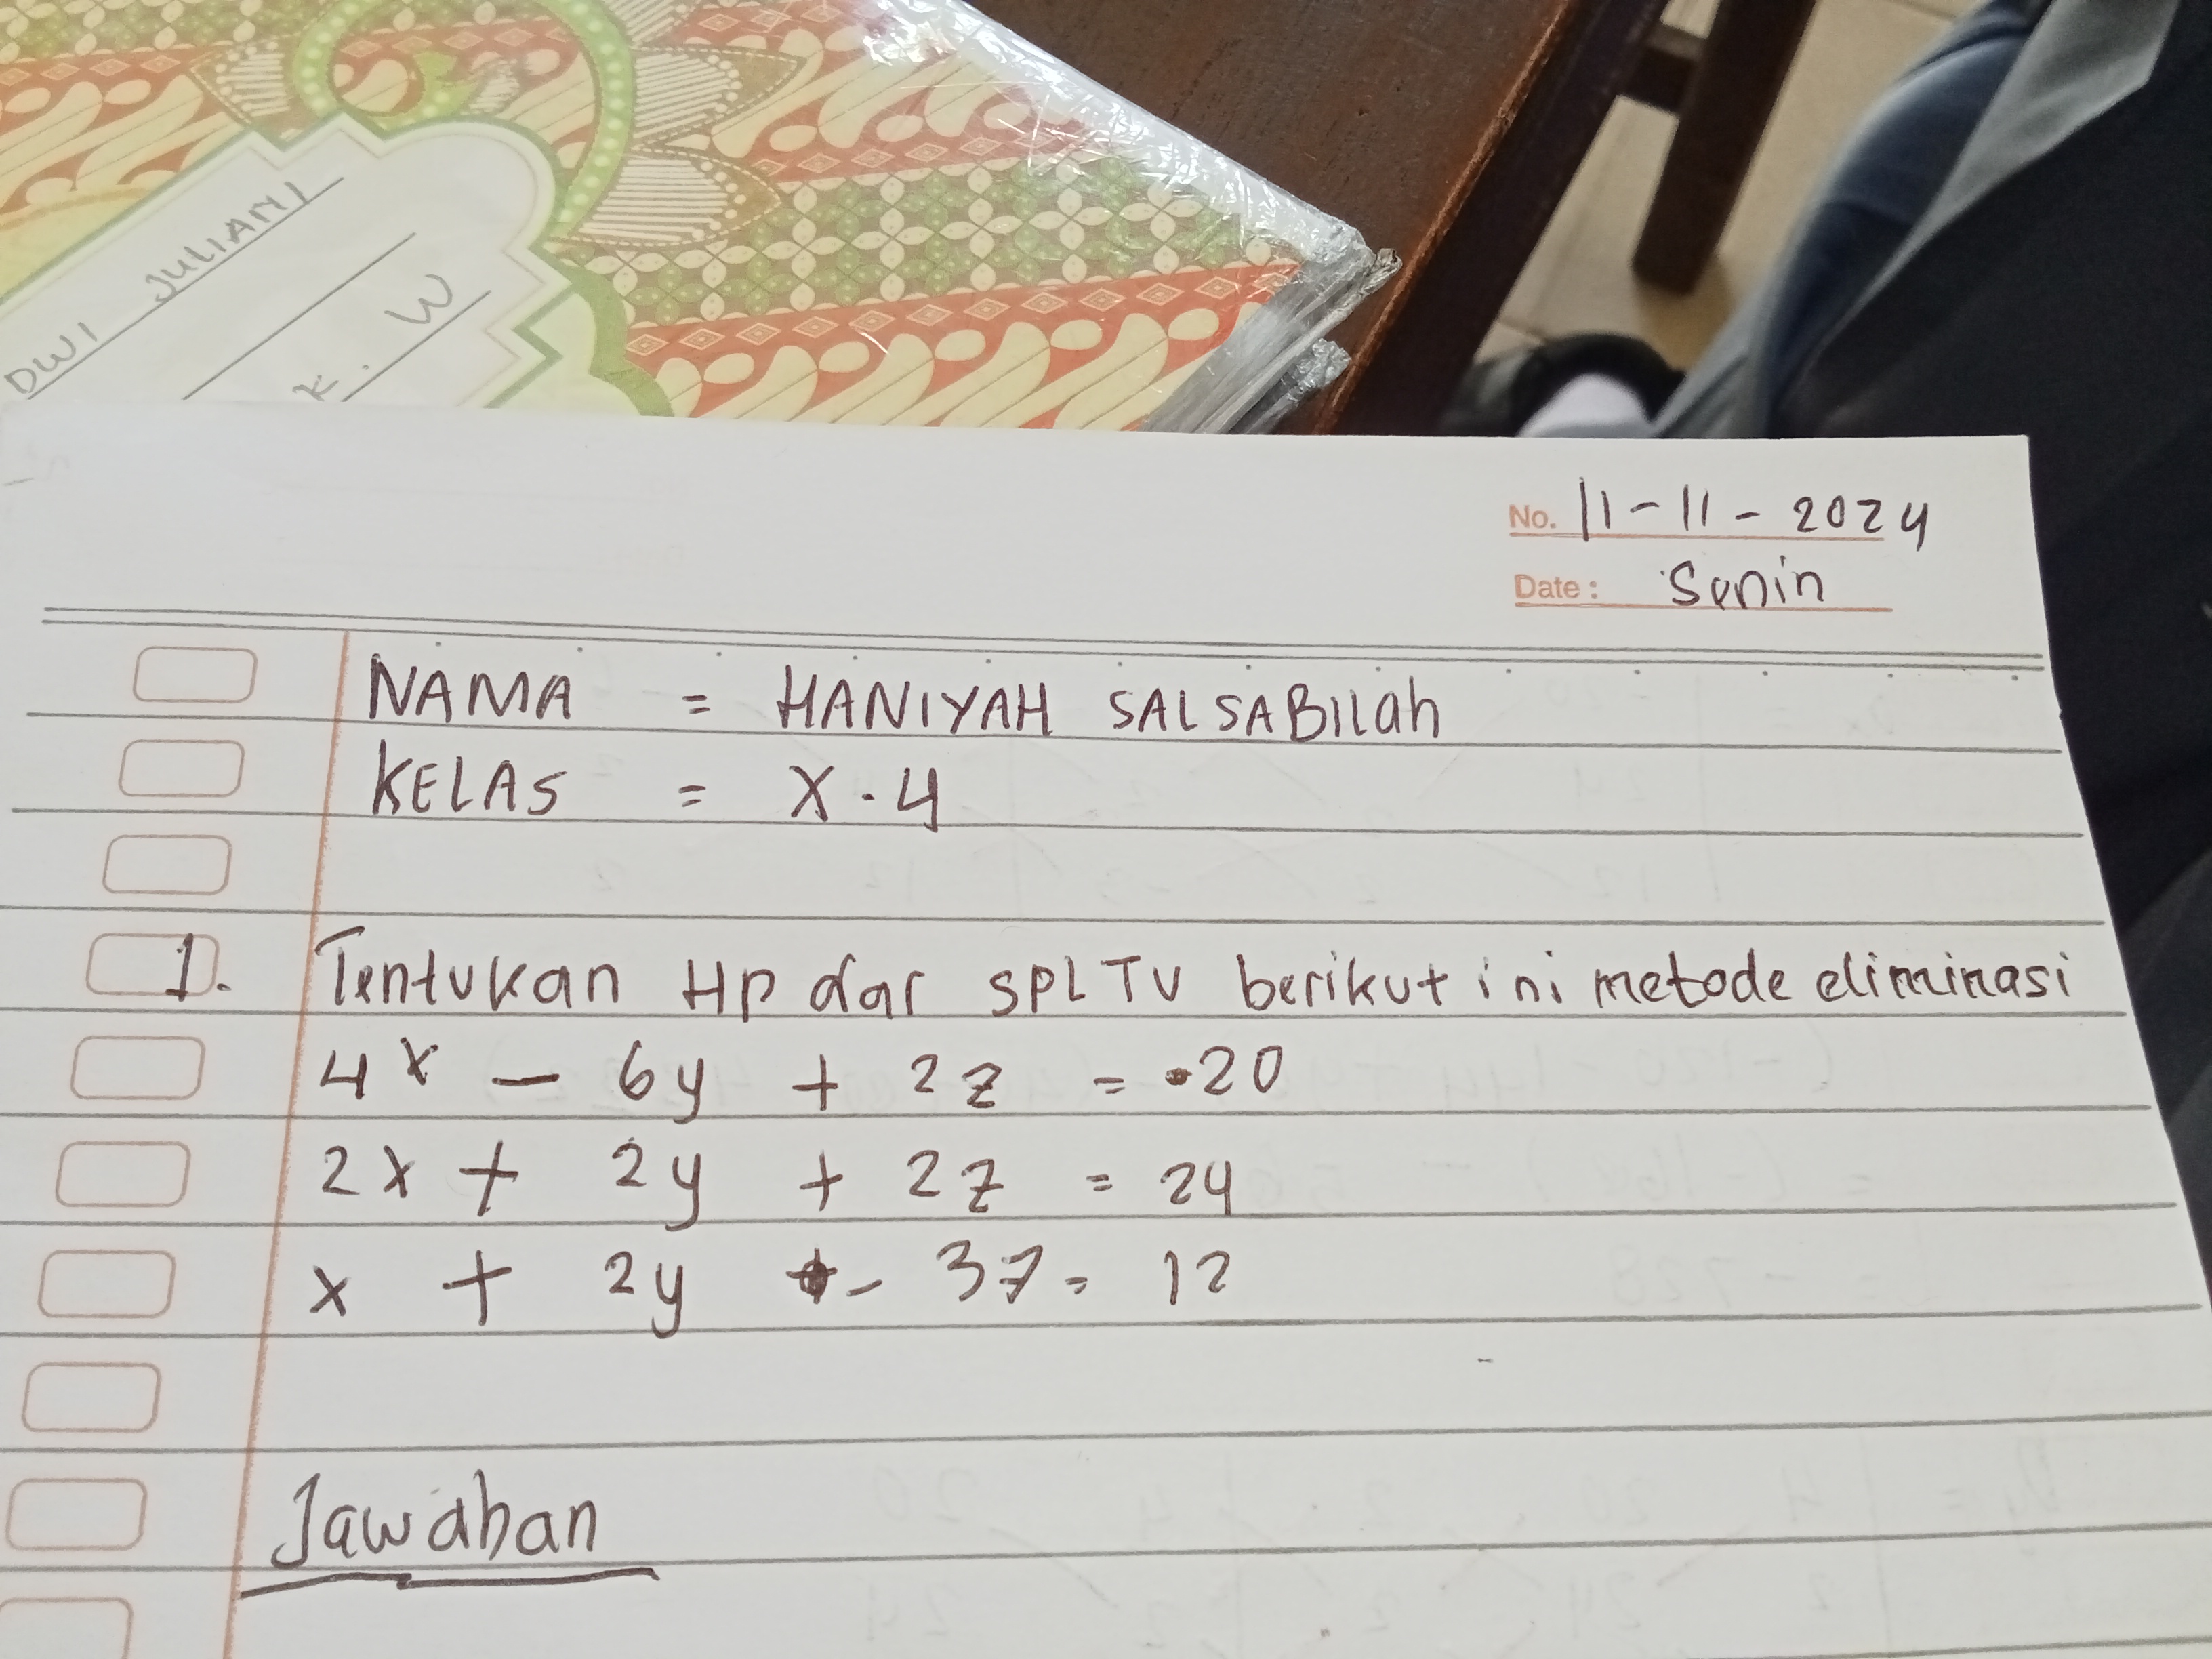 DWI JULIANI
K. W
No. 11-11-2024
Date: Senin
NAMA = HANIYAH SALSABILah
KELAS = X.4
1. Tentukan HP dar SPLTV berikut ini metode eliminasi
4x - 6y + 2z = -20
2x + 2y + 2z = 24
x + 2y - 3z = 12
Jawaban